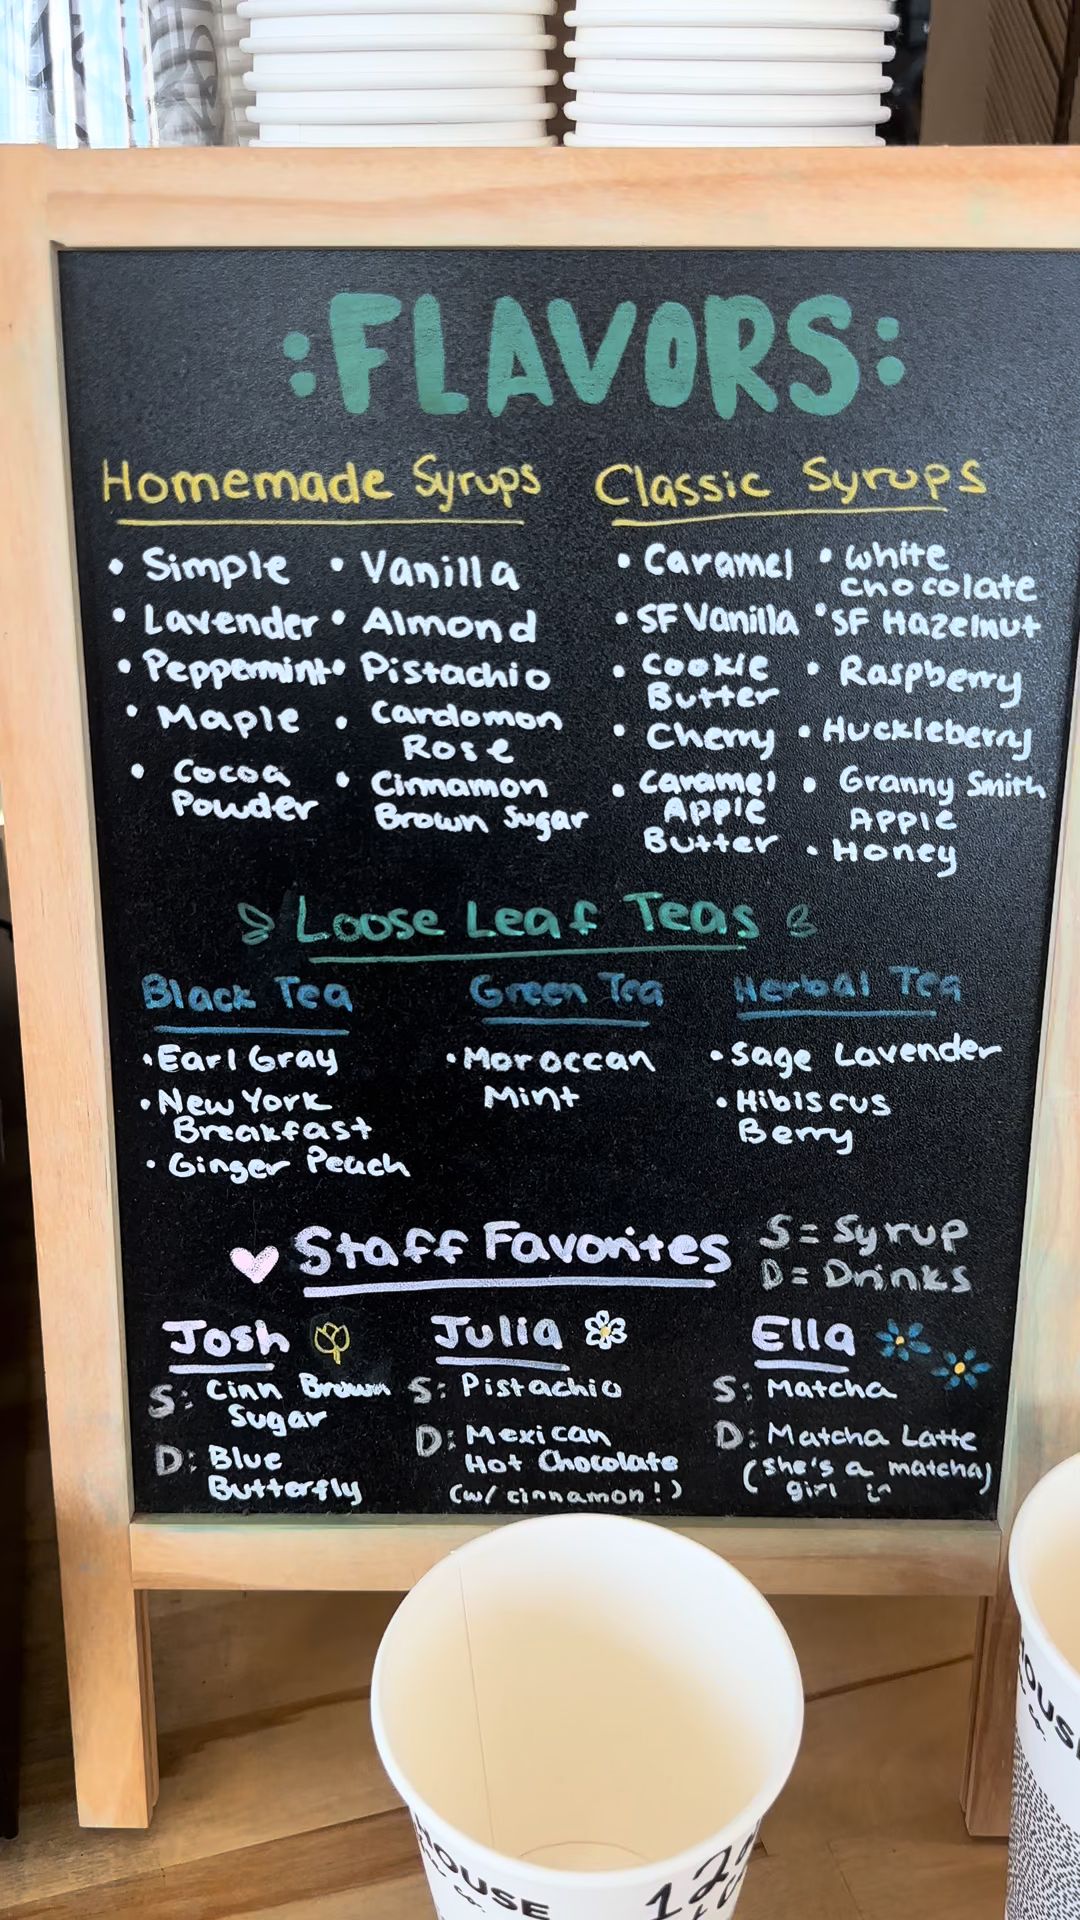 FLAVORS
Homemade Syrups
• Simple
• Lavender
• Peppermint
• Maple
• Cocoa
Powder
• Vanilla
• Almond
• Pistachio
• Cardomon
Rose
• Cinnamon
Brown Sugar
Classic Syrups
• Caramel
• SF Vanilla
• Cookie
Butter
• Cherry
• Caramel
Apple
Butter
• White
Chocolate
• SF Hazelnut
• Raspberry
• Huckleberry
• Granny Smith
Apple
• Honey
Loose Leaf Teas
Black Tea
• Earl Gray
• New York
Breakfast
• Ginger Peach
Green Tea
• Moroccan
Mint
Herbal Tea
• Sage Lavender
• Hibiscus
Berry
Staff Favorites
S = Syrup
D = Drinks
Josh
S: Cinn Brown
Sugar
D: Blue
Butterfly
Julia
S: Pistachio
D: Mexican
Hot Chocolate
(w/ cinnamon!)
Ella
S: Matcha
D: Matcha Latte
(she's a matcha)
girl :)
HOUSE
12